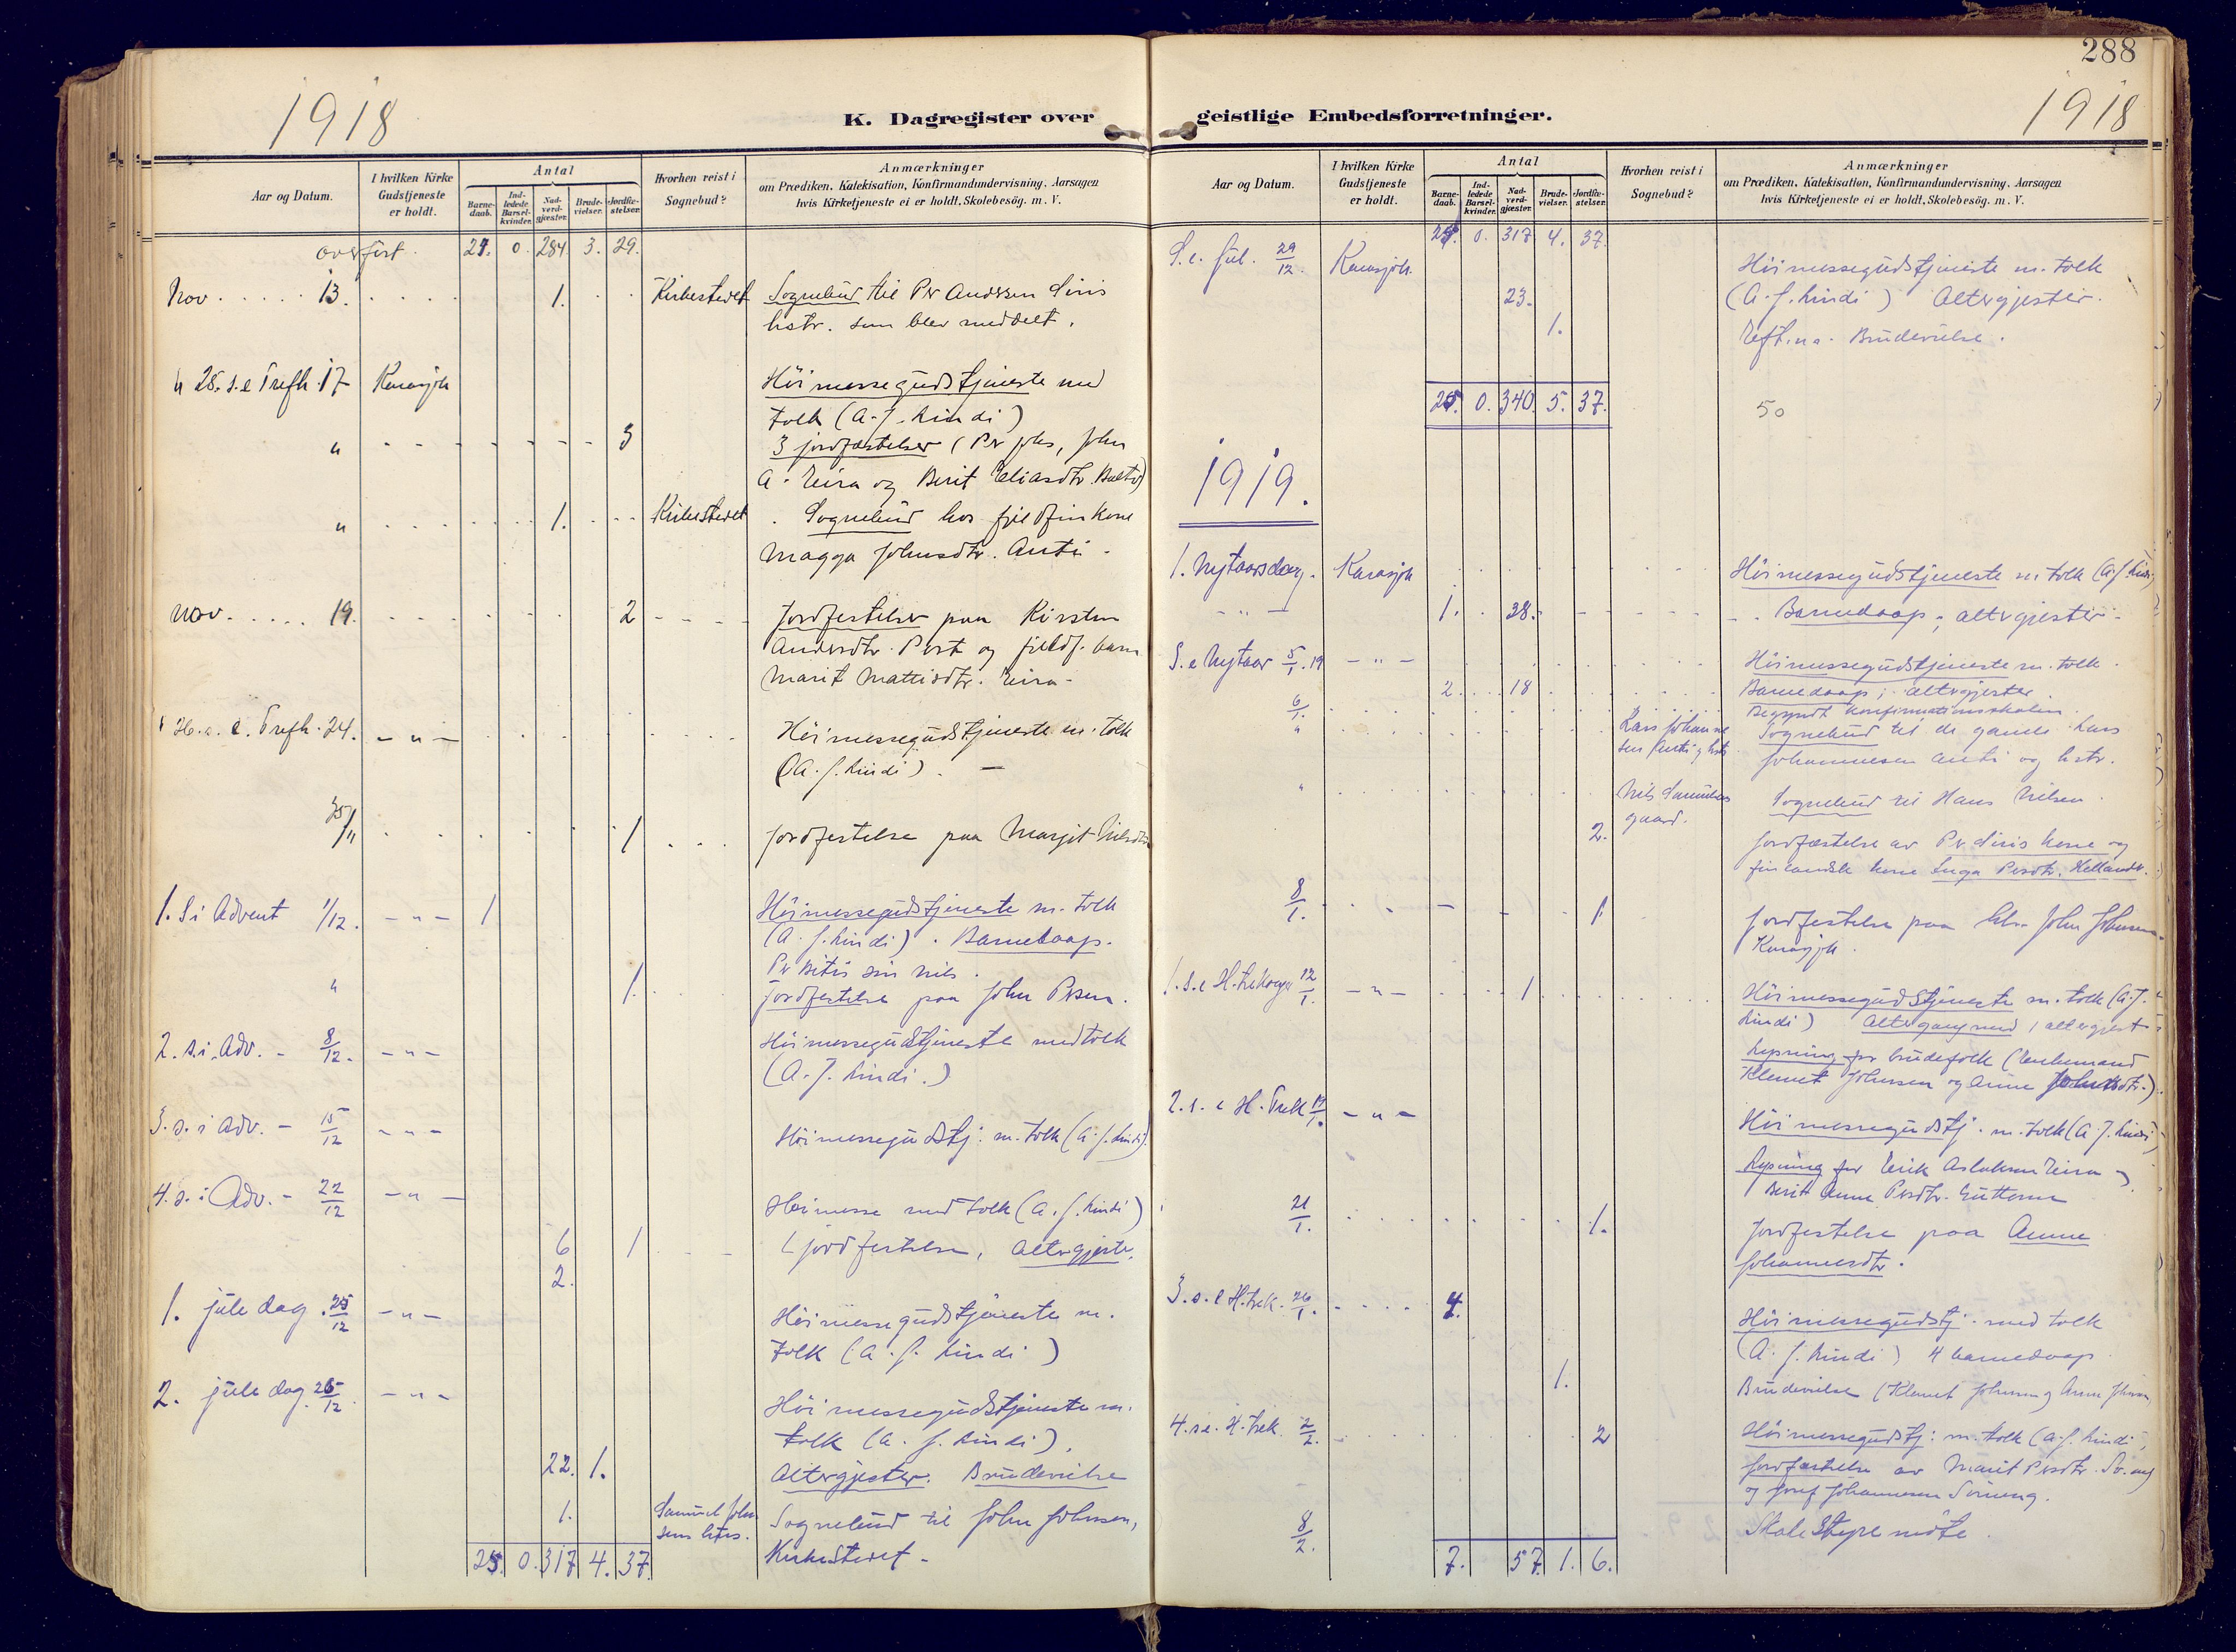 288
1918
K. Dagregister over
Aar og Datum.
I hvilken Kirke Gudstjeneste er holdt.
Antal
Barne-daab.
Ind-ledede Barsel-kvinder.
Nad-verd-gjæster.
Brude-vielser.
Jordfæ-stelser.
Hvorhen reist i Sognebud?
Anmærkninger
om Prædiken, Katekisation, Konfirmandundervisning, Aarsagen
hvis Kirketjeneste ei er holdt, Skolebesög. m. V.
overfört. 0. 284. 3. 29.
Nov. .... 13. 1. Kirkestedet Sognebud til Per Andersen Siris
hstr. som blev meddelt.
" 25. s.e Trefh. 17 Karasjok Höimessegudstjeneste med
Tolk (A. J. Lindi)
" 3 3 jordfæstelser (Per Johs, John
A. Eira og Berit Eliasdtr.
" 1. Kirkestedet Sognebud hos fjeldfinkone
Magga Johnsdtr. Anti -
Nov. .... 19. 2 Jordfestelser paa Kirsten
Andersdtr. Post og fjeldf. barn
Marit Mattisdtr. Eira -
26. s. e. Trefh. 24. - " - Höimessegudstjeneste m. tolk
(A. J. Lindi). -
25/11 1 Jordfestelse paa Margit Nilsdtr
1. S i Advent 1/12. - " - 1 Höimessegudstjeneste m. tolk
(A. J. Lindi). Barnedaap.
Per Bitis sin Nils.
" 1. Jordfestelse paa John Persen.
2. s.i. Adv. - 8/12. - " - Höimessegudstjeneste med tolk
(A. J. Lindi.)
3. s. i Adv. - 15/12 - " - Höimessegudstj: m. tolk (A. J. Lindi).
4. s. i Adv. - 22/12 - " - Höimesse med tolk (A. J. Lindi)
6 1 1 jordfestelse, Altergjester.
2.
1. jule dag. 25/12 - " - Höimessegudstjeneste m.
Tolk (A. J. Lindi)
2. jule dag. 26/12. - " - Höimessegudstjeneste m.
tolk (A. J. Lindi).
22. 1. Altergjester. Brudevielse
1. Samuel John
sens hus. Sognebud til John Johnsen,
Kirkestedet -
25. 0. 317 4. 37.
geistlige Embedsforretninger.
1918
Aar og Datum.
I hvilken Kirke Gudstjeneste er holdt.
Antal
Barne-daab.
Ind-ledede Barsel-kvinder.
Nad-verd-gjæster.
Brude-vielser.
Jordfæ-stelser.
Hvorhen reist i Sognebud?
Anmærkninger
om Prædiken, Katekisation, Konfirmandundervisning, Aarsagen
hvis Kirketjeneste ei er holdt, Skolebesög. m. V.
25. 0. 317 4. 37.
S. e. Jul. 29/12. Karasjok. Höimessegudstjeneste m. tolk
23. (A. J. Lindi) Altergjester.
1. Eft.m. Brudevielse.
25. 0. 340. 5. 37. 50
1919.
1. Nytaarsdag. Karasjok Höimessegudstjeneste m. tolk (A. J. Lindi)
- " - 1. 38. Barnedaap; altergjester.
S. e Nytaar 5/1. 19 - " - Höimessegudstjeneste m. tolk.
2. 18 Barnedaap; altergjester.
6/1. Begyndt konfirmationsskolen.
" Lars Johanne
sen Anti og hstr. Sognebud til de gamle Lars
Johannesen Anti og hstr.
" Nils Samuelsens
gaard. Sognebud til Hans Nilsen.
2. Jordfæstelse av Per Siris kone og
finlandsk kone Inga Persdtr.
8/1. 1. Jordfestelse paa John Johnsen
Karasjok.
1. s.e H. trekonger 12/1. - " - 1 Höimessegudstjeneste m. tolk (A. J.
Lindi) Altergang med 1 altergjest
Lysning for brudefolk (Enkemand
Klemet Johnsen og Anne Johnsdtr.)
2. s. e H. Trek 19/1. - " - Höimessegudstj. m. tolk (A. J. Lindi)
Lysning for Erik Aslaksen Eira og
Berit Anne Persdtr. Guttorm
21/1. 1. Jordfestelse paa Anne
Johannesdtr.
3. s. e H. trek. 26/1. 4. Höimessegudstj. med tolk
(A. J. Lindi) 4 barnedaap
1. Brudevielse (Klemet Johnsen og Anne Johnsen
4. s e. H. trek. 2/2. 2 Höimessegudstj: m. tolk (A. J. Lindi)
Jordfæstelse av Marit Persdtr.
og Josef Johannesen
8/2. Skolestyremöte.
7. 57. 1. 6.